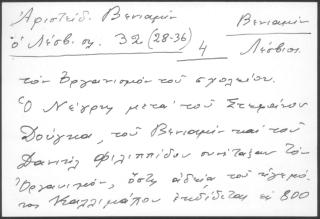 Ἀριστείδ. Βενιαμὶν
ὁ Λέσβιος. 32 (28-36)
4
Βενιαμὶν
Λέσβιος
τὸν Ὀργανισμὸν τοῦ σχολείου.
Ὁ Νέγρης μετὰ τοῦ Στεφάνου
Δούγκα, τοῦ Βενιαμὶν καὶ τοῦ
Δανιὴλ Φιλιππίδου συνέταξαν τὸν
Ὀργανισμόν, ὅστις ἀδείᾳ τοῦ ἡγεμό-
νος Καλλιμάχου ἐκδίδεται εἰς 800